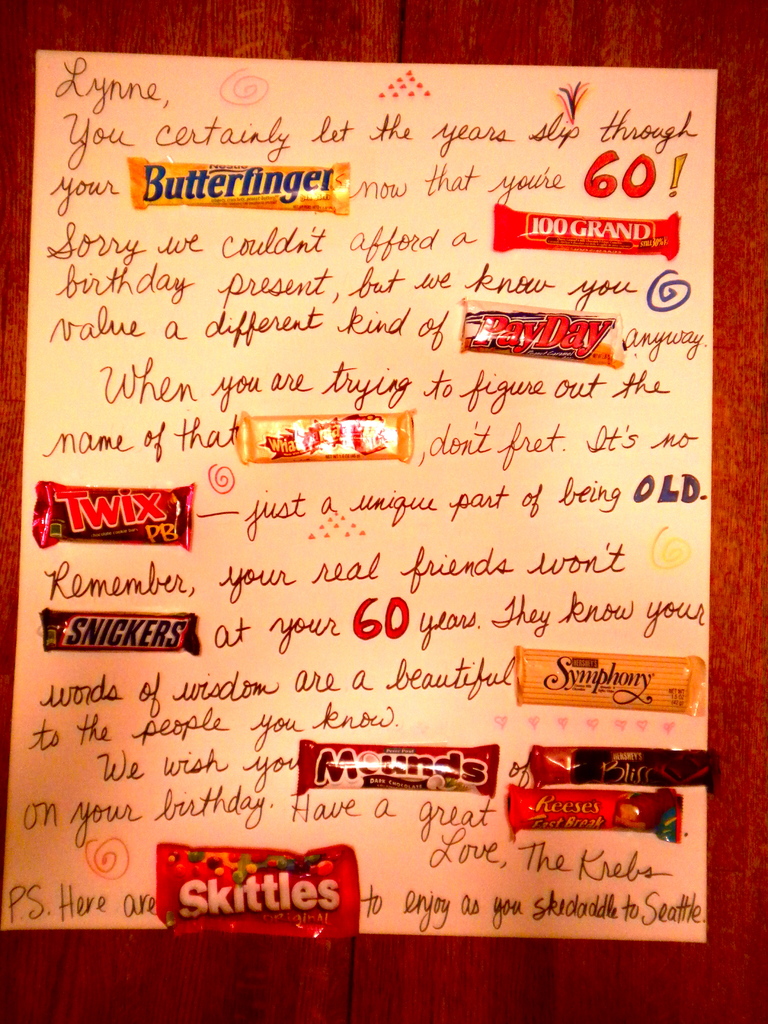 Lynne,
You certainly let the years slip through
your Butterfinger s now that you're 60!
Sorry we couldn't afford a 100 GRAND
birthday present, but we know you
value a different kind of PayDay anyway.
When you are trying to figure out the
name of that Whatchamacallit, don't fret. It's no
Twix PB — just a unique part of being OLD.
Remember, your real friends won't
SNICKERS at your 60 years. They know your
words of wisdom are a beautiful HERSHEY'S Symphony
to the people you know.
We wish you Mounds DARK CHOCOLATE of HERSHEY'S Bliss
on your birthday. Have a great Reese's Fast Break.
Love, The Krebs
P.S. Here are Skittles ORIGINAL to enjoy as you skedaddle to Seattle.